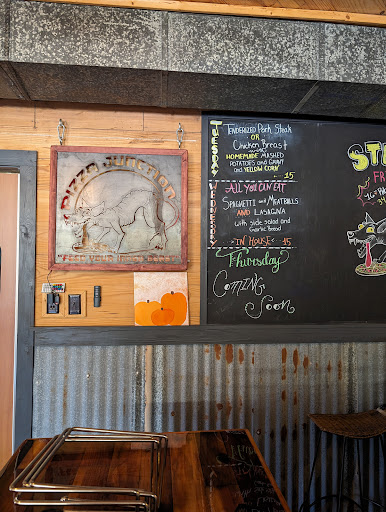 PIZZA JUNCTION
FEED YOUR INNER BEAST
TUESDAY
TENDERIZED Pork STEAK
OR
Chicken Breast
HOMEMADE MASHED
POTATOES and GRAVY
and YELLOW CORN
15
WEDNESDAY
All You Can EAT
SPAGHETTI and MEATBALLS
AND LASAGNA
with side salad and
Garlic Bread
"IN HOUSE" 15
Thursday
COMING
Soon
ST
FR